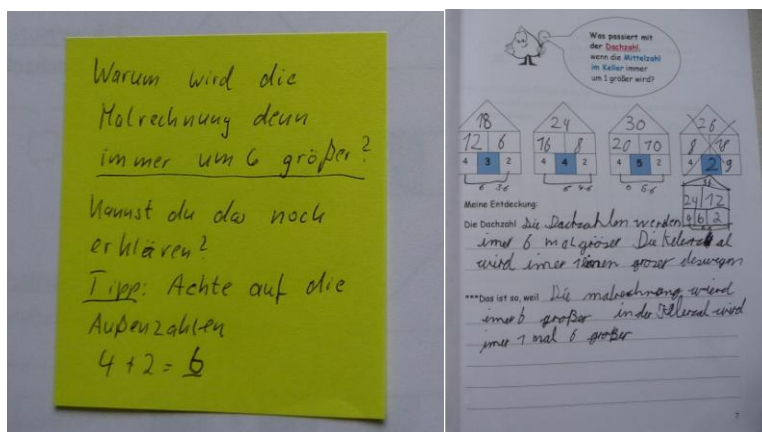 Warum wird die
Malrechnung denn
immer um 6 größer?
Kannst du das noch
erklären?
Tipp: Achte auf die
Außenzahlen
4 + 2 = 6
Was passiert mit
der Dachzahl,
wenn die Mittelzahl
im Keller immer
um 1 größer wird?
18 24 30 26
12 6 16 8 20 10 8 18
4 3 2 4 4 2 4 5 2 4 2 9
6 3·6 6 4·6 6 5·6
36
24 12
4 6 2
Meine Entdeckung:
Die Dachzahl Die Dachzahlen werden
imer 6 mal gröser Die
wird imer groser deswegen
***Das ist so, weil Die malrechnung wierd
imer 6 großer in der wird
imer 1 mal 6 großer
7